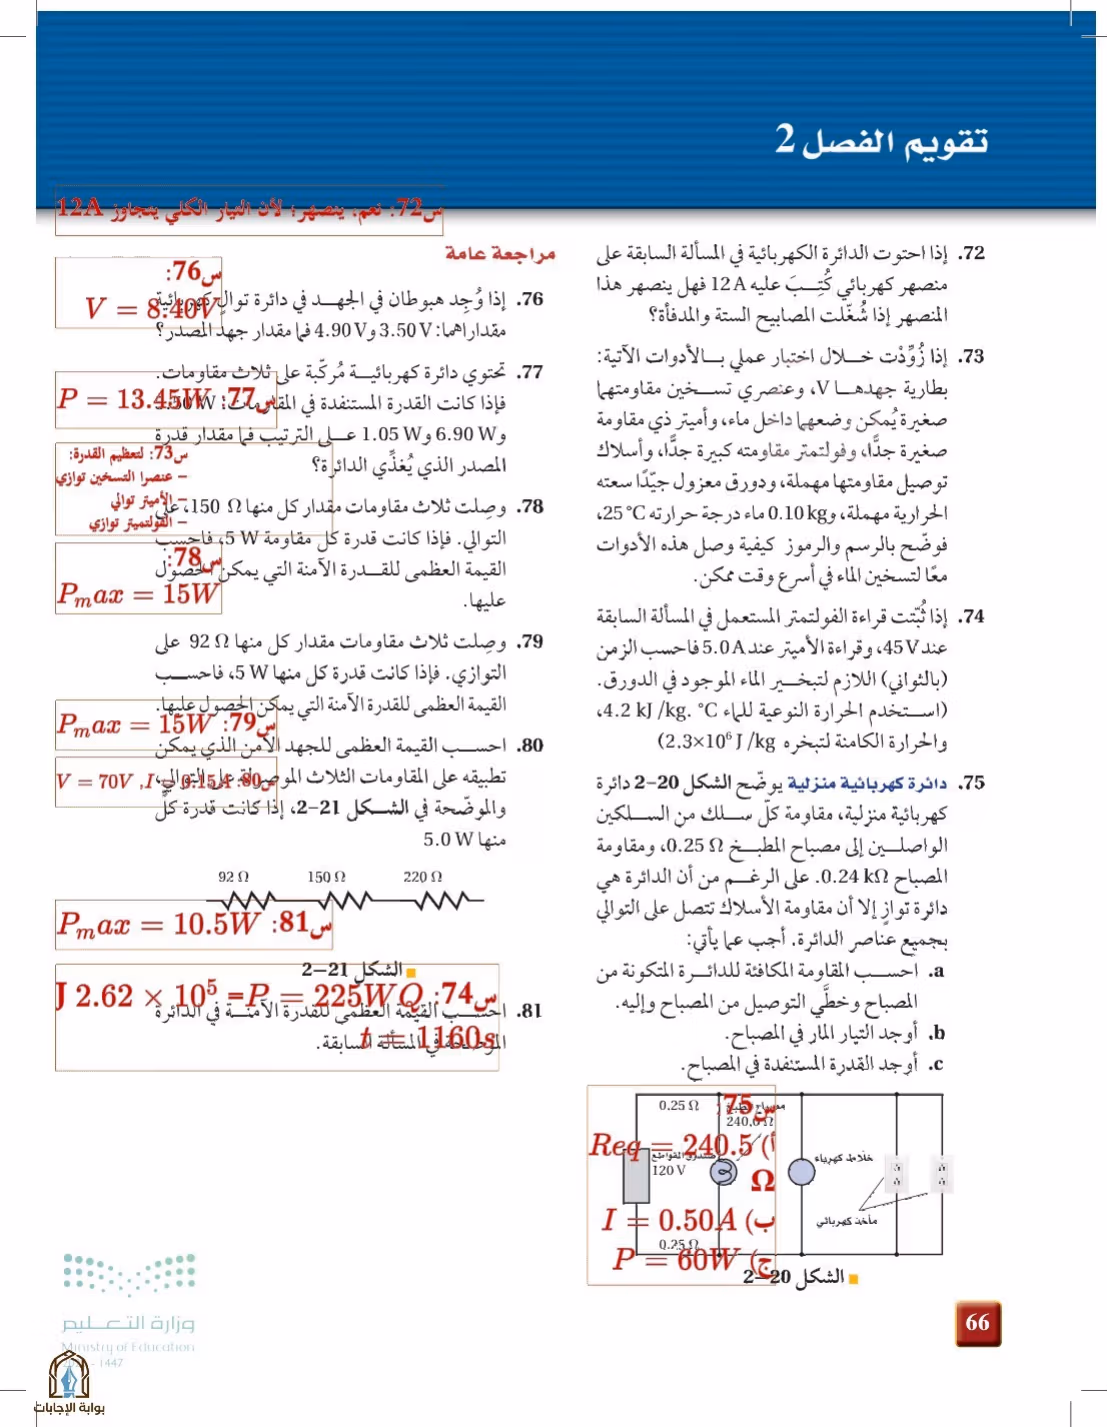 تقويم الفصل 2
س72: نعم، ينصهر؛ لأن التيار الكلي يتجاوز 12A
72. إذا احتوت الدائرة الكهربائية في المسألة السابقة على
منصهر كهربائي كُتِبَ عليه 12 A فهل ينصهر هذا
المنصهر إذا شُغّلت المصابيح الستة والمدفأة؟
73. إذا زُوِّدْت خلال اختبار عملي بالأدوات الآتية:
بطارية جهدها V، وعنصري تسخين مقاومتهما
صغيرة يُمكن وضعهما داخل ماء، وأميتر ذي مقاومة
صغيرة جدًّا، وفولتمتر مقاومته كبيرة جدًّا، وأسلاك
توصيل مقاومتها مهملة، ودورق معزول جيّدًا سعته
الحرارية مهملة، و0.10 kg ماء درجة حرارته 25 °C،
فوضّح بالرسم والرموز كيفية وصل هذه الأدوات
معًا لتسخين الماء في أسرع وقت ممكن.
74. إذا ثُبّتت قراءة الفولتمتر المستعمل في المسألة السابقة
عند 45 V، وقراءة الأميتر عند 5.0 A فاحسب الزمن
(بالثواني) اللازم لتبخير الماء الموجود في الدورق.
(استخدم الحرارة النوعية للماء 4.2 kJ /kg. °C،
والحرارة الكامنة لتبخره 2.3×10⁶ J /kg)
75. دائرة كهربائية منزلية يوضّح الشكل 20–2 دائرة
كهربائية منزلية، مقاومة كلّ سلك من السلكين
الواصلين إلى مصباح المطبخ 0.25 Ω، ومقاومة
المصباح 0.24 kΩ. على الرغم من أن الدائرة هي
دائرة توازٍ إلا أن مقاومة الأسلاك تتصل على التوالي
بجميع عناصر الدائرة. أجب عما يأتي:
a. احسب المقاومة المكافئة للدائرة المتكونة من
المصباح وخطَّي التوصيل من المصباح وإليه.
b. أوجد التيار المار في المصباح.
c. أوجد القدرة المستنفدة في المصباح.
0.25 Ω
240.0 Ω
120 V
0.25 Ω
خلاط كهرباء
مأخذ كهربائي
س75:
أ) Req = 240.5
Ω
ب) I = 0.50A
ج) P = 60W
الشكل 20–2
مراجعة عامة
76. إذا وُجِد هبوطان في الجهد في دائرة توالٍ كهربائية
مقداراهما: 3.50 V و4.90 V فما مقدار جهد المصدر؟
س76:
V = 8.40V
77. تحتوي دائرة كهربائية مُركّبة على ثلاث مقاومات.
فإذا كانت القدرة المستنفدة في المقاومات: 5.50 W
و6.90 W و1.05 W على الترتيب فما مقدار قدرة
المصدر الذي يُغذّي الدائرة؟
س77: P = 13.45W
س73: لتعظيم القدرة:
– عنصرا التسخين توازي
– الأميتر توالي
– الفولتميتر توازي
78. وصِلت ثلاث مقاومات مقدار كل منها 150 Ω، على
التوالي. فإذا كانت قدرة كل مقاومة 5 W، فاحسب
القيمة العظمى للقدرة الآمنة التي يمكن الحصول
عليها.
س78:
P_max = 15W
79. وصِلت ثلاث مقاومات مقدار كل منها 92 Ω على
التوازي. فإذا كانت قدرة كل منها 5 W، فاحسب
القيمة العظمى للقدرة الآمنة التي يمكن الحصول عليها.
س79: P_max = 15W
80. احسب القيمة العظمى للجهد الآمن الذي يمكن
تطبيقه على المقاومات الثلاث الموصولة على التوالي،
والموضّحة في الشكل 21–2، إذا كانت قدرة كلّ
منها 5.0 W
س80: V = 70V ,I = 0.15A
92 Ω 150 Ω 220 Ω
س81: P_max = 10.5W
الشكل 21–2
81. احسب القيمة العظمى للقدرة الآمنة في الدائرة
الموضحة في المسألة السابقة.
س74: P = 225W Q= 2.62 × 10⁵ J
t = 1160s
وزارة التعليم
Ministry of Education
- 1447
66
بوابة الإجابات